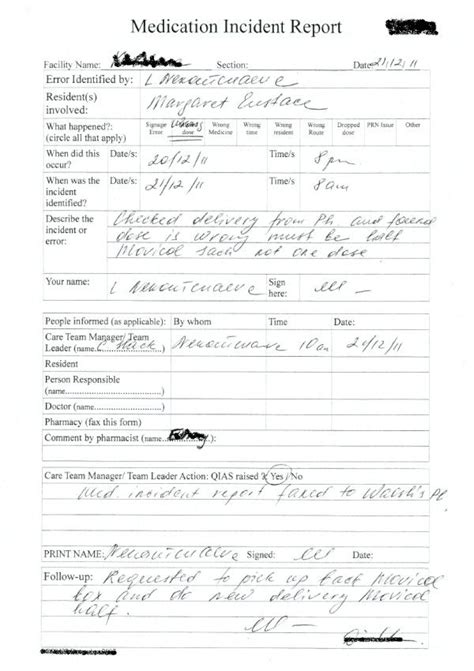 Medication Incident Report
Facility Name: Section: Date: 21/12/11
Error Identified by: L
Resident(s) involved: Margaret Eustace
What happened?: (circle all that apply) Signage Error Wrong dose Wrong Medicine Wrong time Wrong resident Wrong Route Dropped dose PRN Issue Other
When did this occur? Date/s: 20/12/11 Time/s 8pm
When was the incident identified? Date/s: 21/12/11 Time/s 8am
Describe the incident or error: Checked delivery from Ph. and found
dose is wrong must be half
Movicol sach not one dose
Your name: L Sign here:
People informed (as applicable): By whom Time Date:
Care Team Manager/ Team Leader (name C) 10am 21/12/11
Resident
Person Responsible (name..............)
Doctor (name..............)
Pharmacy (fax this form)
Comment by pharmacist (name..............)
Care Team Manager/ Team Leader Action: QIAS raised? Yes / No
Med incident report faxed to Walsh's Ph
PRINT NAME: Signed: Date:
Follow-up: Requested to pick up back Movicol
box and do new delivery Movicol
half.